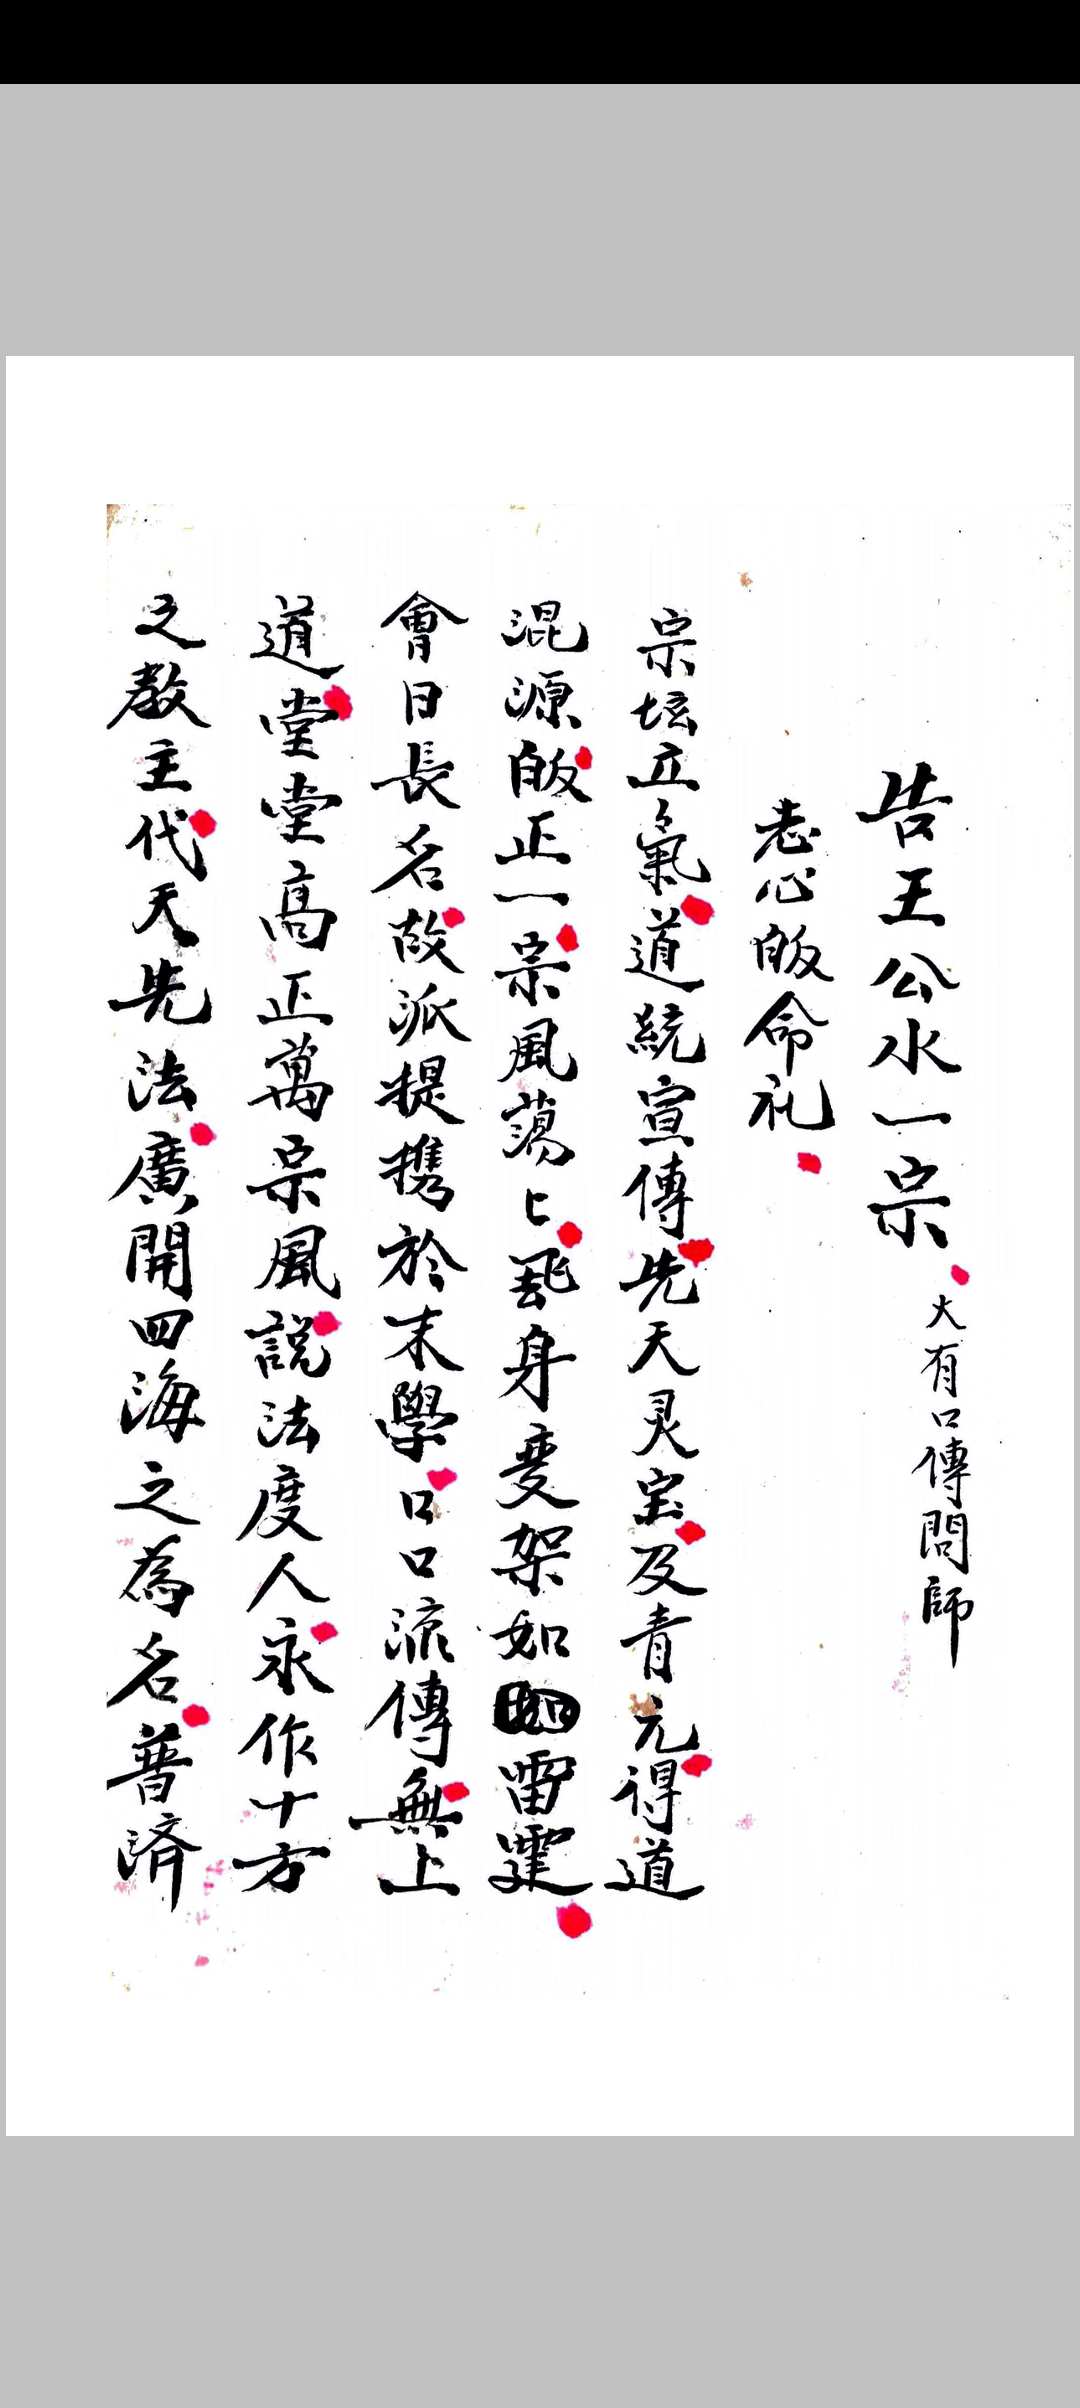 告王公水一宗 大有口傳問師
志心皈命礼
宗坛立氣道統宣傳先天灵宝及青元得道
混源皈正一宗風蕩〻飛身变架如雷霆
會日長名故派提携於末學口口流傳無上
道堂堂高正萬宗風説法度人永作十方
之教主代天先法廣開四海之為名普済